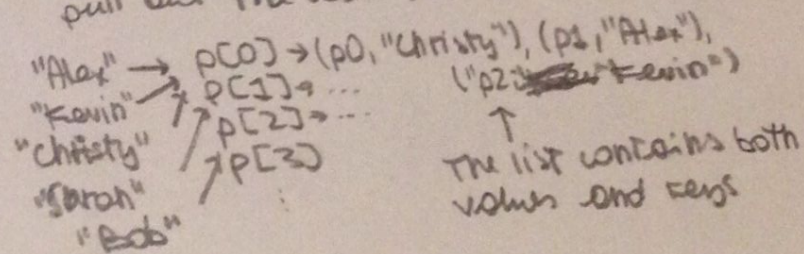 pull out the
"Alex" → p[0] → (p0, "Christy"), (p1, "Alex"),
"Kevin" p[1] → ... ("p2, Kevin")
"Christy" p[2] → ...
"Saran" p[3]
"Bob" ⋮
↑
The list contains both
values and keys